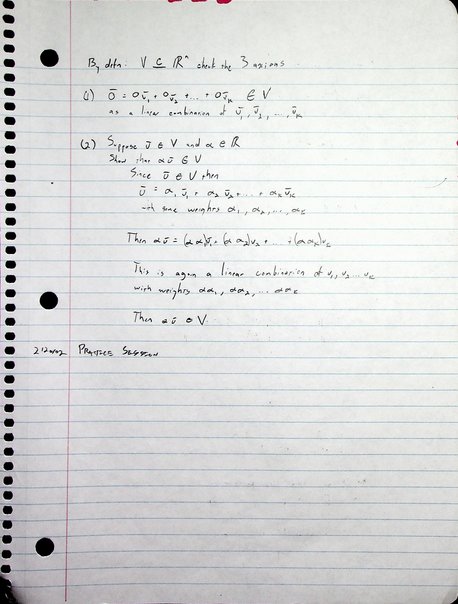 By defn: V ⊆ ℝⁿ check the 3 axioms
(1) 0̄ = 0v̄₁ + 0v̄₂ + ... + 0v̄ₖ ∈ V
as a linear combination of v̄₁, v̄₂, ..., v̄ₖ
(2) Suppose ū ∈ V and α ∈ ℝ
Show that αū ∈ V
Since ū ∈ V then
ū = α₁v̄₁ + α₂v̄₂ + ... + αₖv̄ₖ
with some weights α₁, α₂, ..., αₖ
Then αū = (αα₁)v̄₁ + (αα₂)v₂ + ... + (ααₖ)vₖ
This is again a linear combination of v₁, v₂ ... vₖ
with weights αα₁, αα₂, ... ααₖ
Then αū ∈ V
PRACTICE SESSION